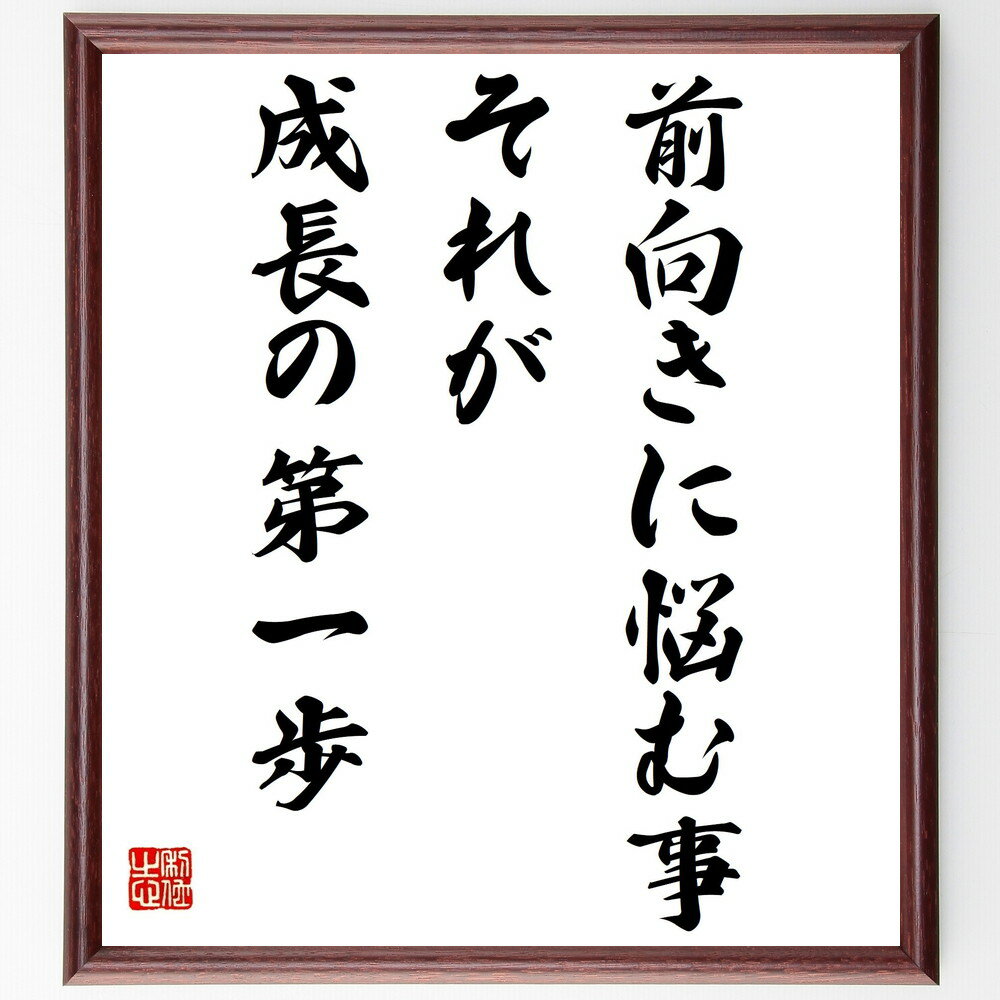 前向きに悩む事
それが
成長の第一歩